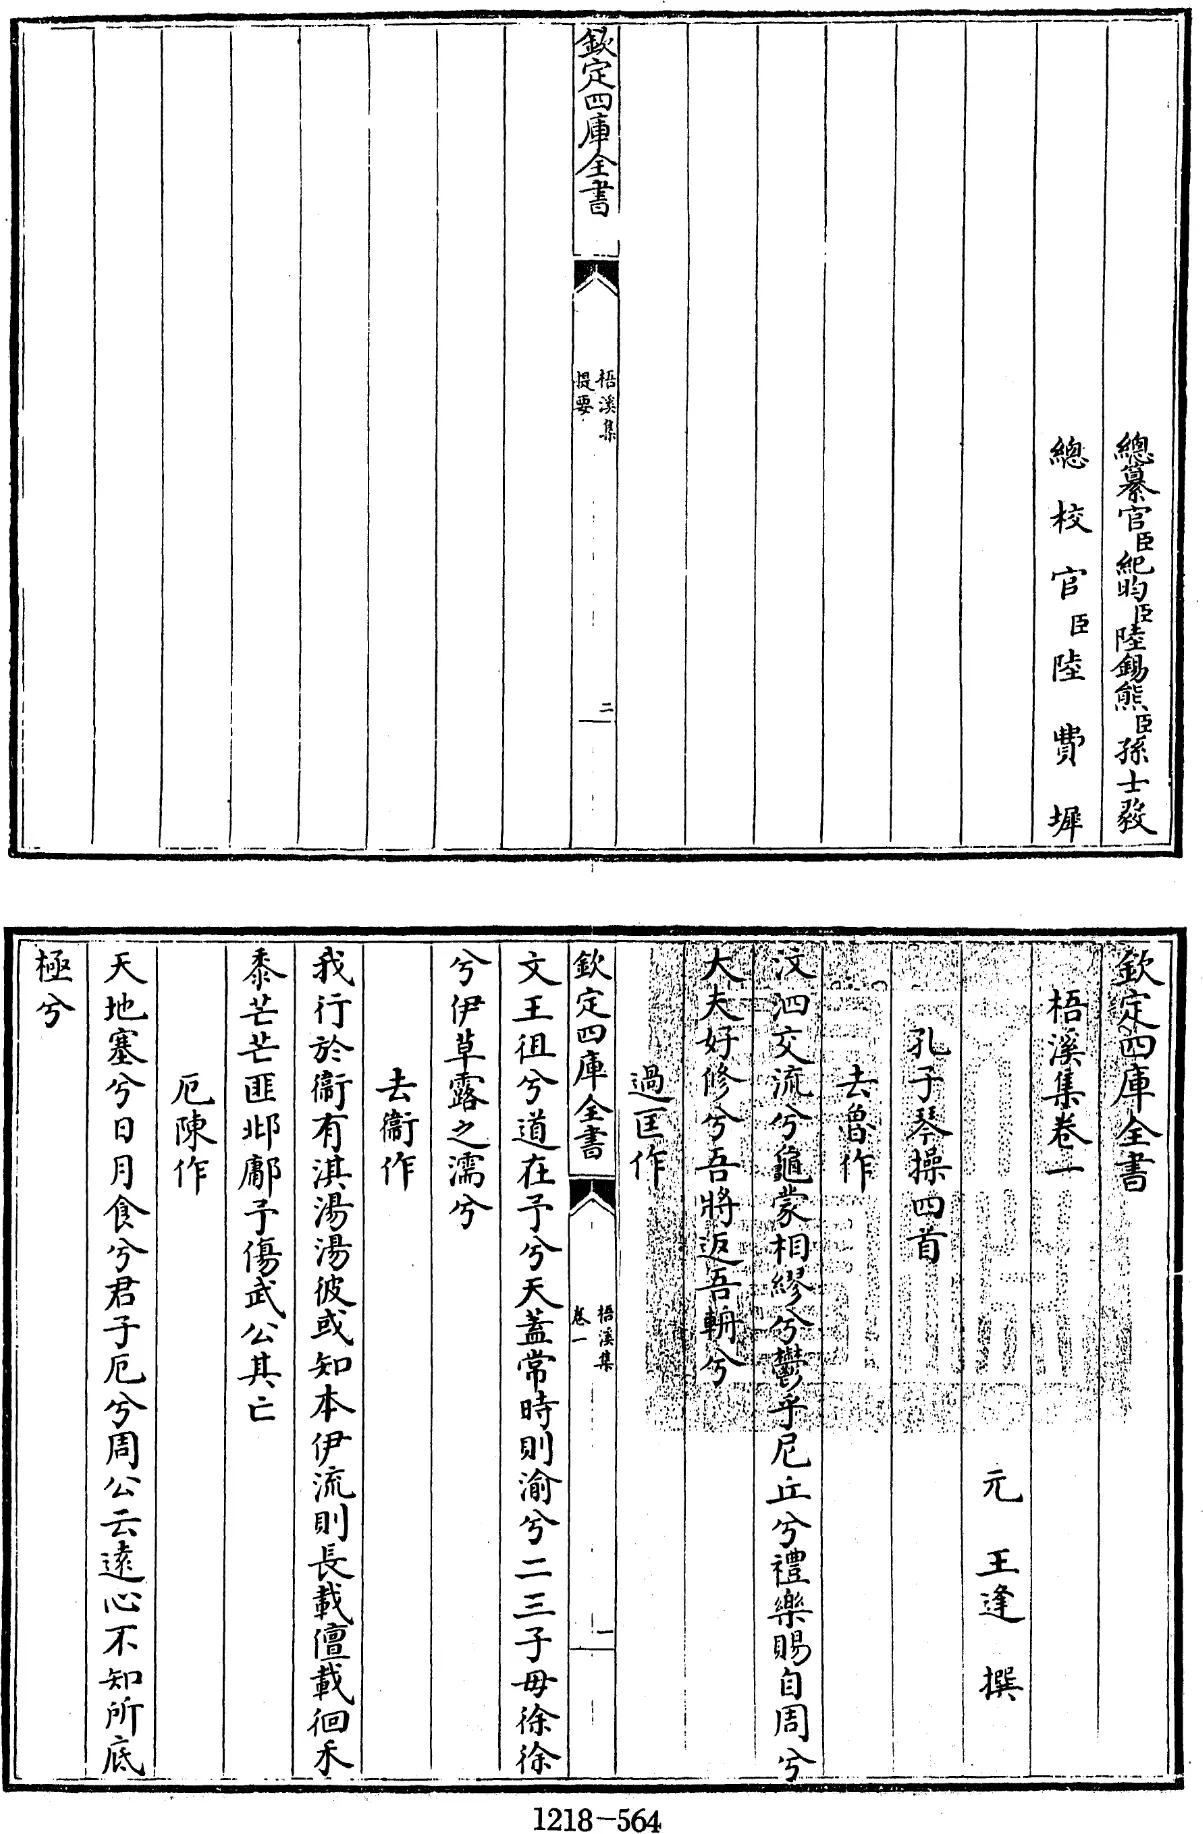 總纂官臣紀昀臣陸錫熊臣孫士毅
總校官臣陸費墀
欽定四庫全書
梧溪集
提要
二
欽定四庫全書
梧溪集卷一
元 王逢 撰
孔子琴操四首
去魯作
汶泗交流兮龜蒙相繆兮鬱乎尼丘兮禮樂賜自周兮
大夫好修兮吾將返吾輈兮
過匡作
欽定四庫全書
梧溪集
卷一
一
文王徂兮道在予兮天蓋常時則渝兮二三子毋徐徐
兮伊草露之濡兮
去衞作
我行於衞有淇湯湯彼或知本伊流則長載儃載徊禾
黍芒芒匪邶鄘予傷武公其亡
厄陳作
天地塞兮日月食兮君子厄兮周公云遠心不知所底
極兮
1218-564